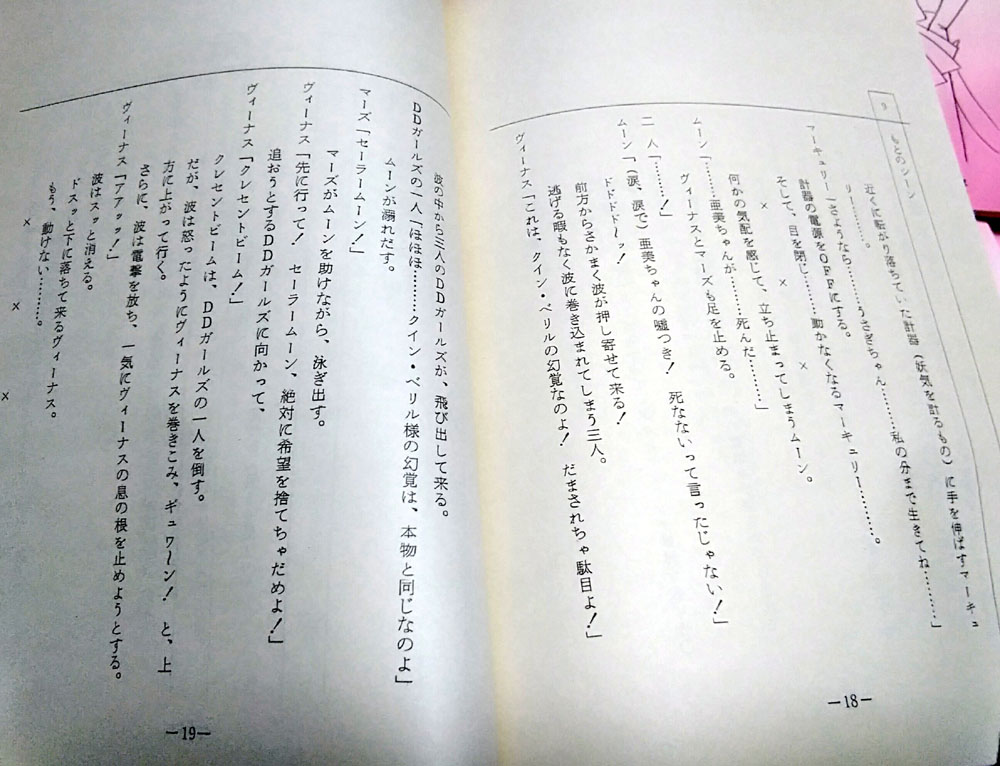 9
もとのシーン
近くに転がり落ちていた計器（妖気を計るもの）に手を伸ばすマーキュ
リー………。
マーキュリー「さようなら………うさぎちゃん………私の分まで生きてね…………」
計器の電源をＯＦＦにする。
そして、目を閉じ………動かなくなるマーキュリー…………。
× × ×
何かの気配を感じて、立ち止まってしまうムーン。
ムーン「………亜美ちゃんが………死んだ………」
ヴィーナスとマーズも足を止める。
二人「………！」
ムーン「（涙、涙で）亜美ちゃんの嘘つき！　死なないって言ったじゃない！」
ドドドド〜ッ！
前方からさかまく波が押し寄せて来る！
逃げる暇もなく波に巻き込まれてしまう三人。
ヴィーナス「これは、クイン・ベリルの幻覚なのよ！　だまされちゃ駄目よ！」
―18―
波の中から三人のＤＤガールズが、飛び出して来る。
ＤＤガールズの一人「ほほほ………クイン・ベリル様の幻覚は、本物と同じなのよ」
ムーンが溺れだす。
マーズ「セーラームーン！」
マーズがムーンを助けながら、泳ぎ出す。
ヴィーナス「先に行って！　セーラームーン、絶対に希望を捨てちゃだめよ！」
追おうとするＤＤガールズに向かって、
ヴィーナス「クレセントビーム！」
クレセントビームは、ＤＤガールズの一人を倒す。
だが、波は怒ったようにヴィーナスを巻きこみ、ギュワーン！　と、上
方に上がって行く。
さらに、波は電撃を放ち、一気にヴィーナスの息の根を止めようとする。
ヴィーナス「アアッッ！」
波はスッと消える。
ドスッと下に落ちて来るヴィーナス。
もう、動けない…………。
× × ×
―19―